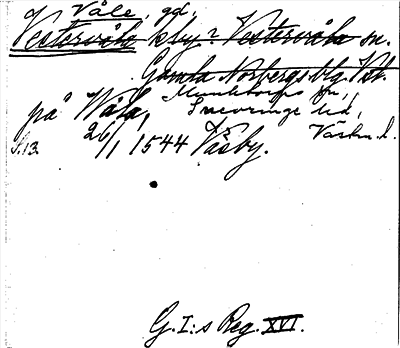 V Våle, gd,
Vestervåla kby? Vestervåla sn.
Gamla Norbergs blg. Vst.
Munktorps sn,
på Wåla, Snevringe hd,
S.13. 26/1 1544 Väsby. Västm. l.
G. I:s Reg. XVI.